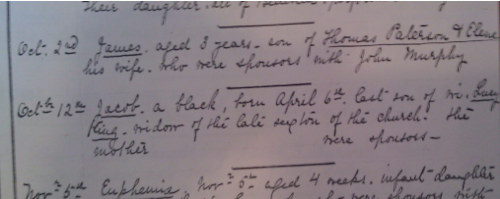 their daughter. all of
Oct. 2nd James. aged 3 years - son of Thomas Paterson & Elene
his wife. who were sponsors with John Murphy
Octbr 12th Jacob. a black, born April 6th. last son of wi. Lucy
King. widow of the late sexton of the church. The
mother were sponsors -
Novr 5th Euphemia. Novr 5th aged 4 weeks. infant daughter
were sponsors with